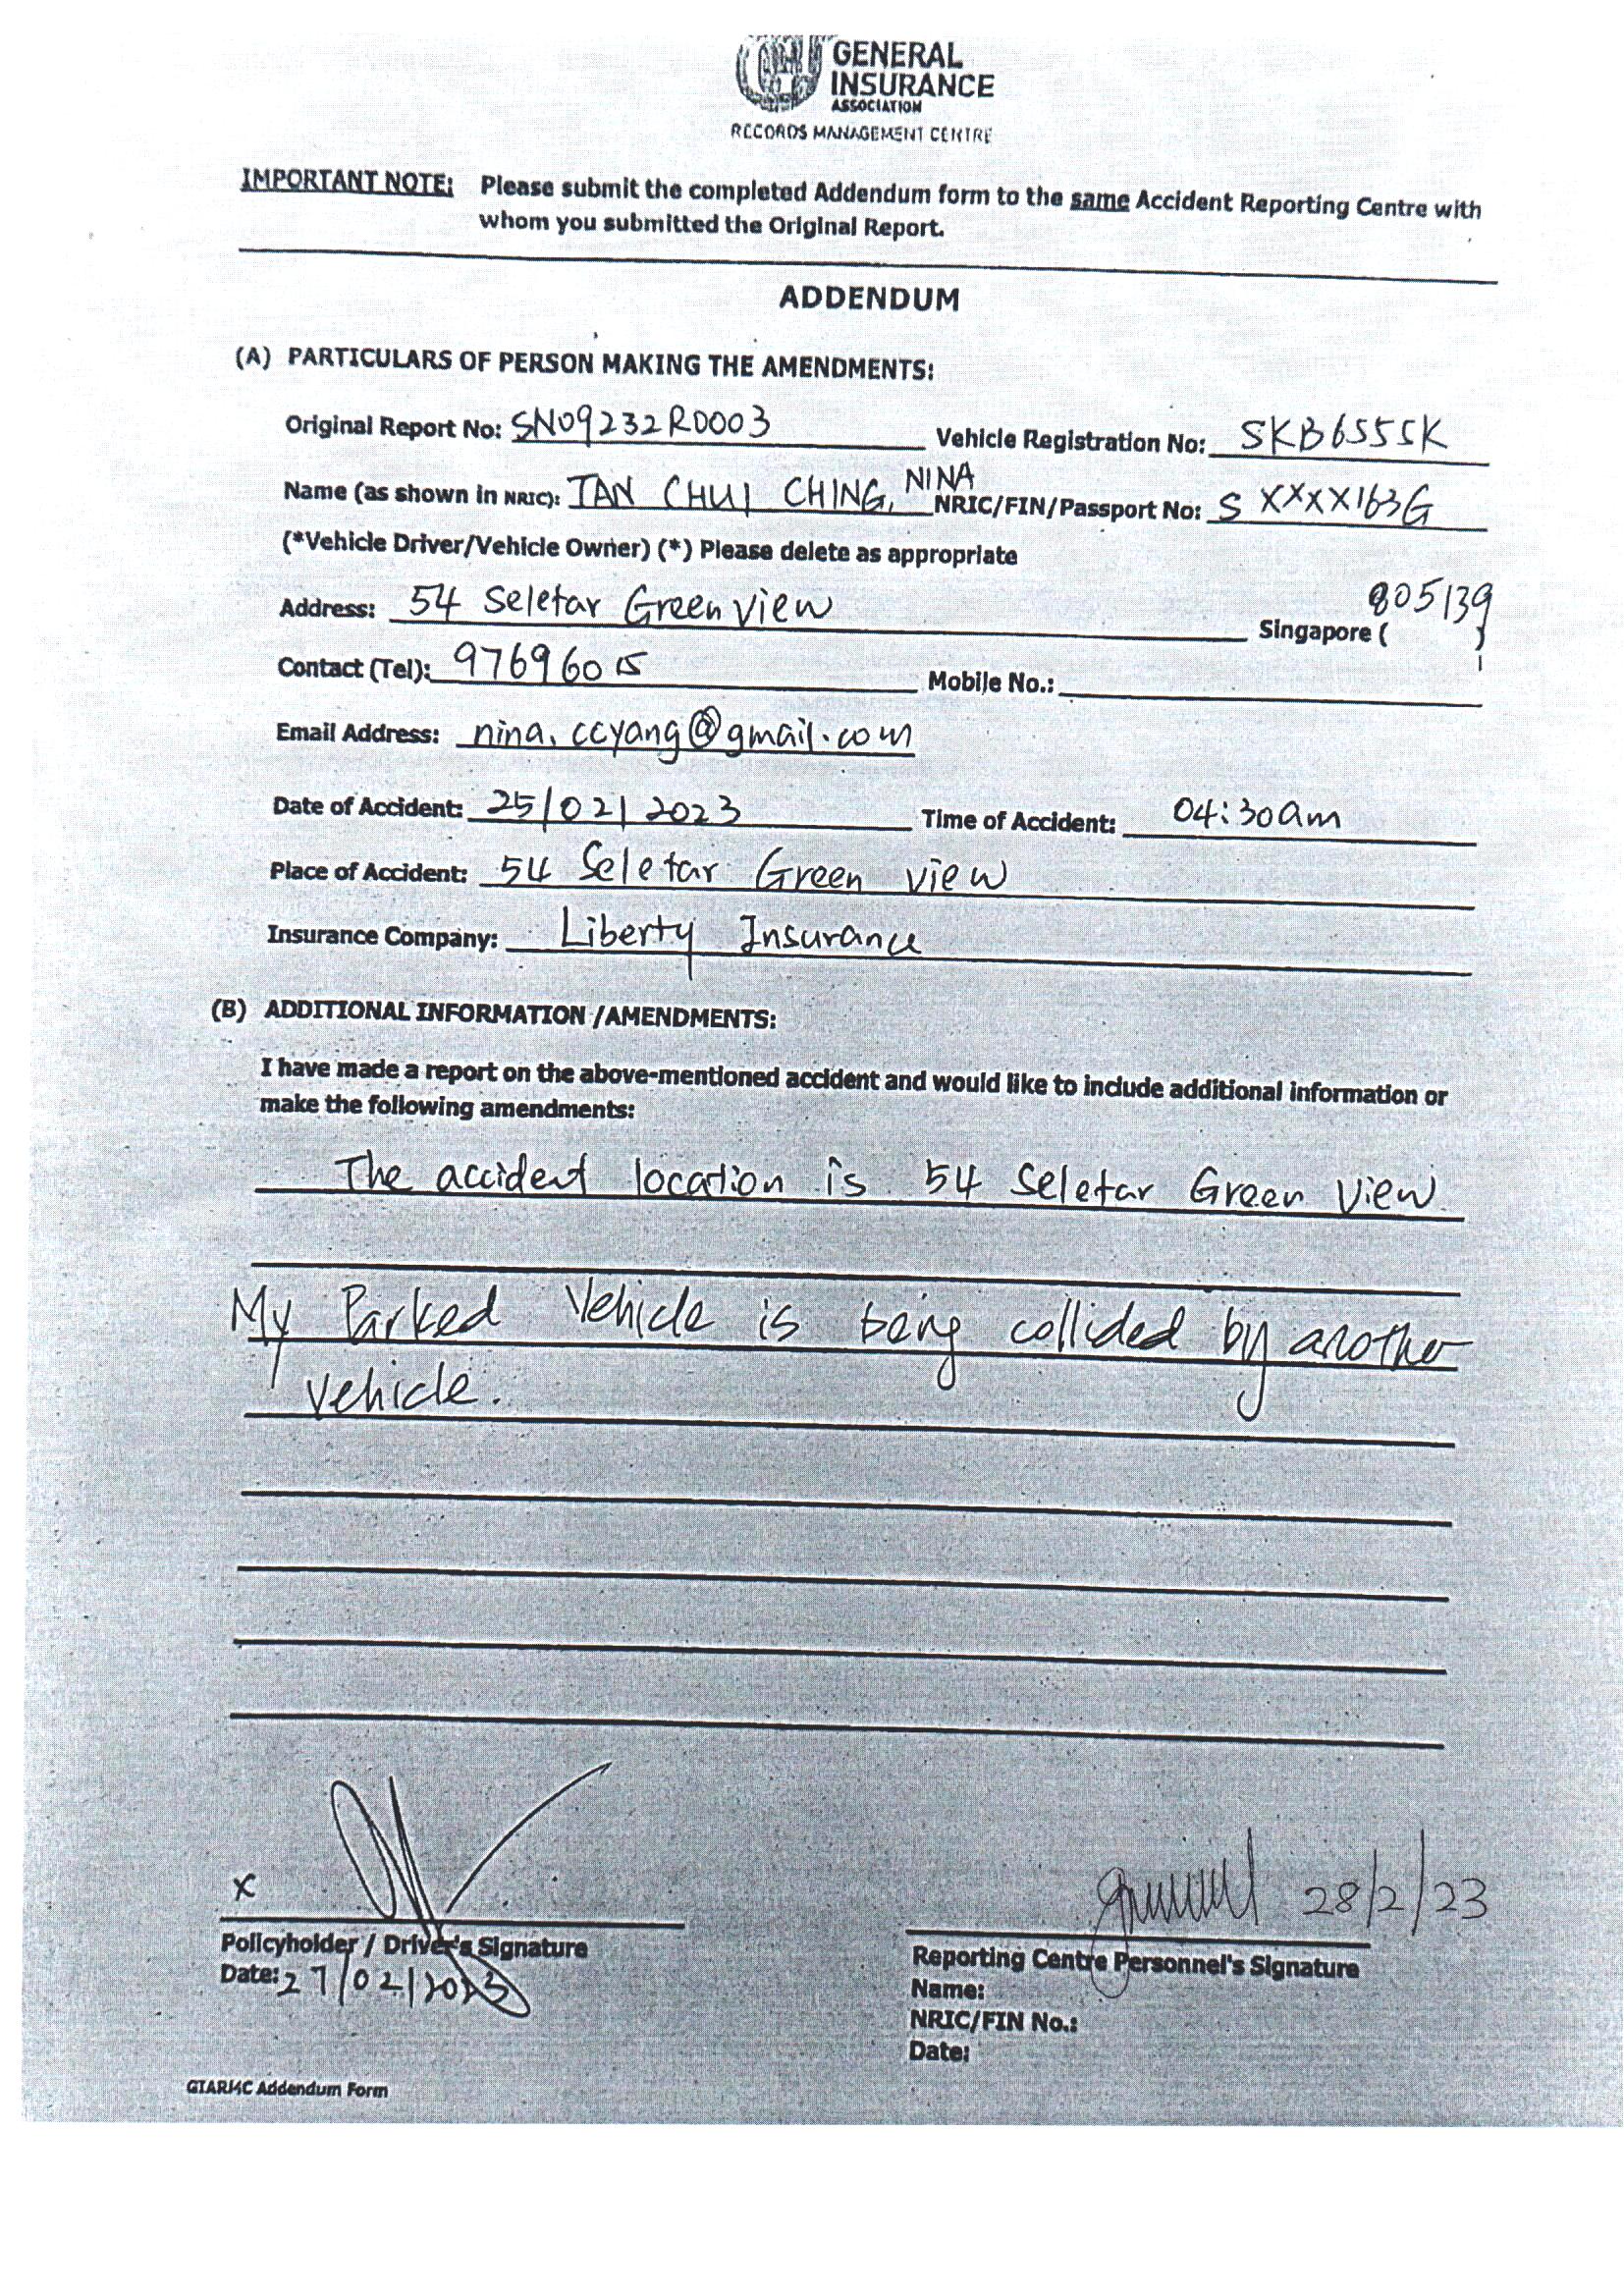 GENERAL
INSURANCE
ASSOCIATION
RECORDS MANAGEMENT CENTRE
IMPORTANT NOTE: Please submit the completed Addendum form to the same Accident Reporting Centre with
whom you submitted the Original Report.
ADDENDUM
(A) PARTICULARS OF PERSON MAKING THE AMENDMENTS:
Original Report No: SN09232R0003 Vehicle Registration No: SKB6555K
Name (as shown in NRIC): TAN CHUI CHING, NINA NRIC/FIN/Passport No: S XXXX163G
(*Vehicle Driver/Vehicle Owner) (*) Please delete as appropriate
Address: 54 Seletar Green View Singapore (805139)
Contact (Tel): 97696015 Mobile No.:
Email Address: nina.ccyang@gmail.com
Date of Accident: 25/02/2023 Time of Accident: 04:30am
Place of Accident: 54 Seletar Green View
Insurance Company: Liberty Insurance
(B) ADDITIONAL INFORMATION /AMENDMENTS:
I have made a report on the above-mentioned accident and would like to include additional information or
make the following amendments:
The accident location is 54 Seletar Green View
My Parked Vehicle is being collided by another
vehicle.
x
28/2/23
Policyholder / Driver's Signature
Date: 27/02/2023
Reporting Centre Personnel's Signature
Name:
NRIC/FIN No.:
Date:
GIARMC Addendum Form